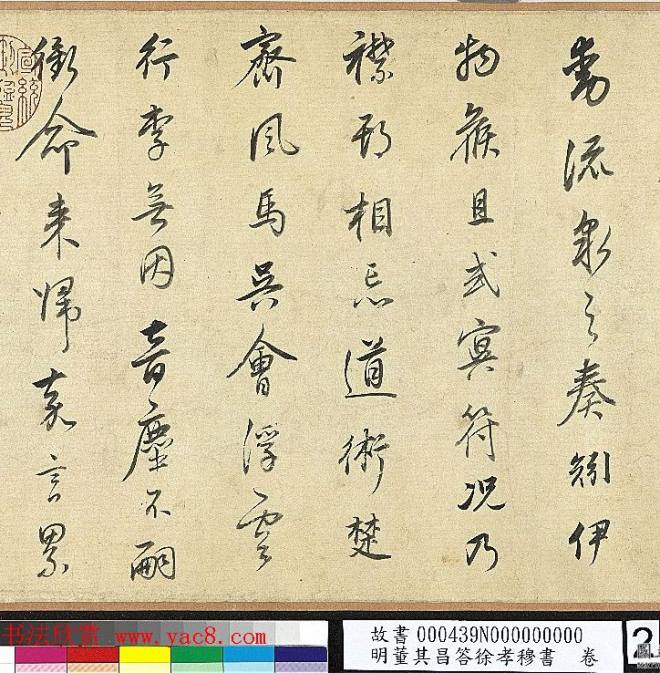 動流泉之奏矧伊
物候且或冥符况乃
襟期相忘道術楚
齊風馬吳會浮雲
行李無因音塵不嗣
銜命来歸嘉言累
书法欣赏 www.yac8.com
故書 000439N000000000
明董其昌答徐孝穆書 卷
2